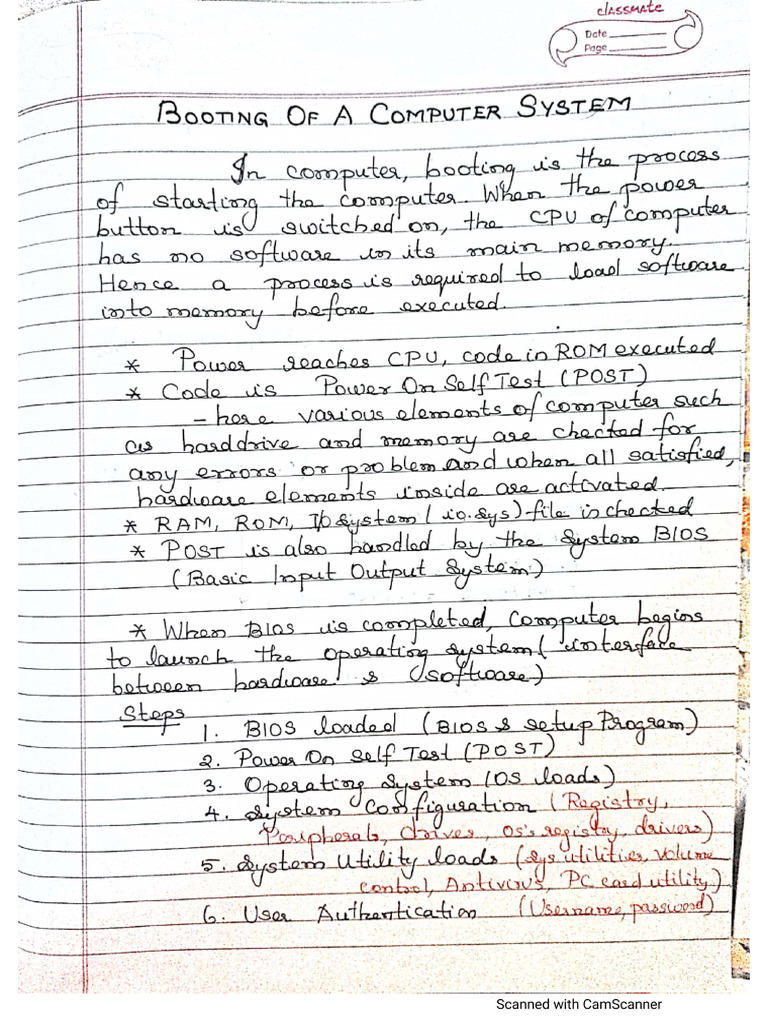 classmate
Date
Page
BOOTING OF A COMPUTER SYSTEM
In computer, booting is the process
of starting the computer. When the power
button is switched on, the CPU of computer
has no software in its main memory.
Hence a process is required to load software
into memory before executed.
* Power reaches CPU, code in ROM executed
* Code is Power On Self Test (POST)
- here various elements of computer such
as harddrive and memory are checked for
any errors or problem and when all satisfied,
hardware elements inside are activated.
* RAM, ROM, I/o System (io.sys) file is checked
* POST is also handled by the System BIOS
(Basic Input Output System)
* When BIOS is completed, Computer begins
to launch the operating system (interface
between hardware & software)
Steps
1. BIOS loaded (BIOS & setup Program)
2. Power On Self Test (POST)
3. Operating System (OS loads)
4. System Configuration (Registry,
Peripherals, drives, OS's registry, drivers)
5. System Utility loads (Sys utilities, Volume
control, Antivirus, PC card utility)
6. User Authentication (Username, password)
Scanned with CamScanner